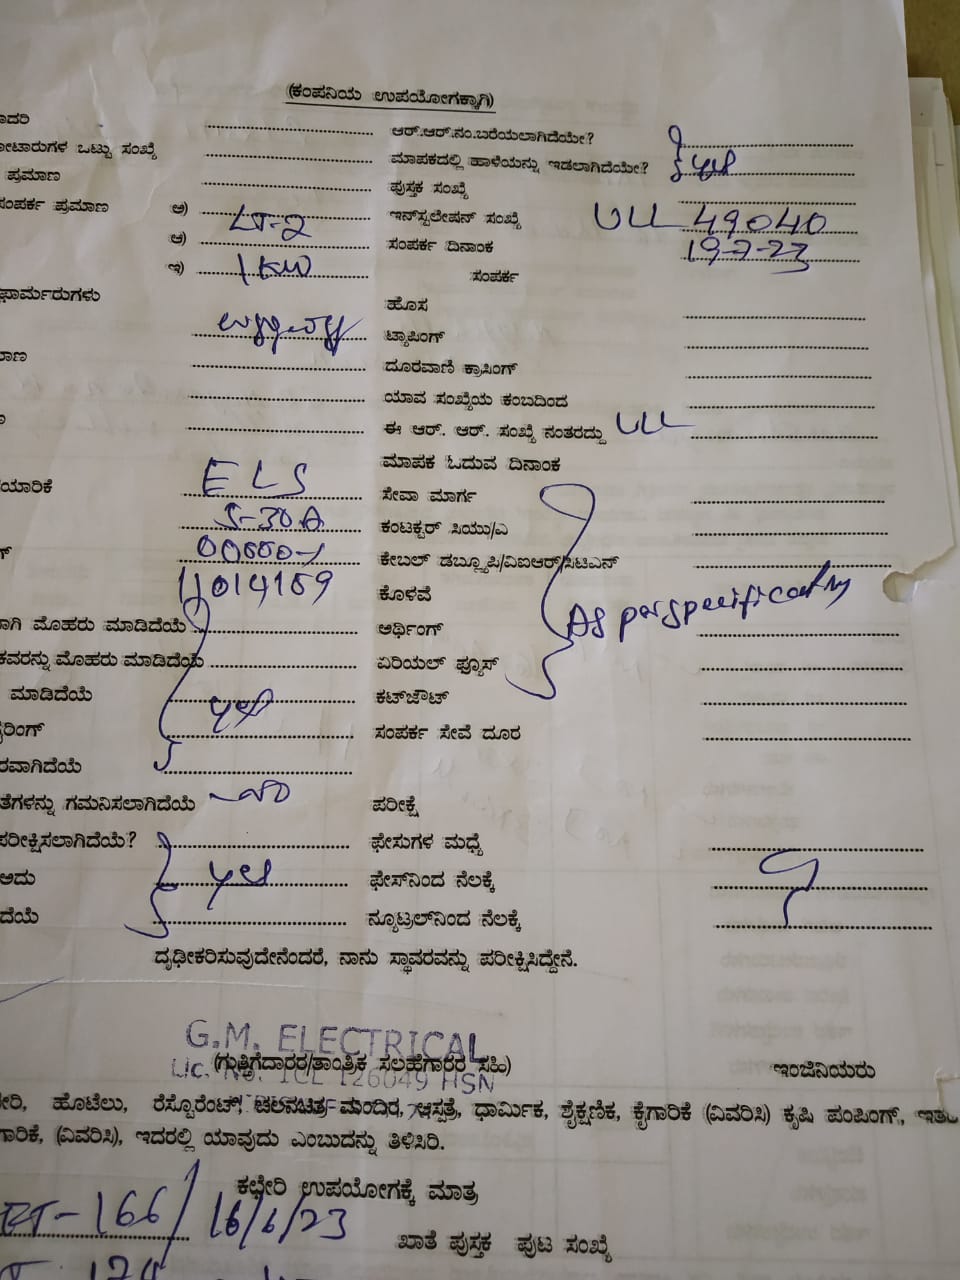 (ಕಂಪನಿಯ ಉಪಯೋಗಕ್ಕಾಗಿ)
ಆರ್.ಆರ್.ನಂ.ಬರೆಯಲಾಗಿದೆಯೇ?
ಒಟ್ಟು ಸಂಖ್ಯೆ ಮಾಪಕದಲ್ಲಿ ಹಾಳೆಯನ್ನು ಇಡಲಾಗಿದೆಯೇ? yes
ಪ್ರಮಾಣ ಪುಸ್ತಕ ಸಂಖ್ಯೆ
ಸಂಪರ್ಕ ಪ್ರಮಾಣ ಅ) LT-2 ಇನ್‌ಸ್ಟಲೇಷನ್ ಸಂಖ್ಯೆ ULL 49040
ಆ) ಸಂಪರ್ಕ ದಿನಾಂಕ 19-7-23
ಇ) 1 KW ಸಂಪರ್ಕ
ಹೊಸ
ಟ್ಯಾಪಿಂಗ್
ದೂರವಾಣಿ ಕ್ರಾಸಿಂಗ್
ಯಾವ ಸಂಖ್ಯೆಯ ಕಂಬದಿಂದ
ಈ ಆರ್. ಆರ್. ಸಂಖ್ಯೆ ನಂತರದ್ದು ULL
ಮಾಪಕ ಓದುವ ದಿನಾಂಕ
ELS ಸೇವಾ ಮಾರ್ಗ
5-30A ಕಂಟಕ್ಟರ್ ಸಿಯು/ಎ
ಕೇಬಲ್ ಡಬ್ಲ್ಯೂಪಿ/ವಿಐಆರ್/ಸಿಟಿಎನ್
11014159 ಕೊಳವೆ
ಮೊಹರು ಮಾಡಿದೆಯೆ ಆರ್ಥಿಂಗ್ As per specification
ಮೊಹರು ಮಾಡಿದೆಯೆ ಏರಿಯಲ್ ಫ್ಯೂಸ್
ಮಾಡಿದೆಯೆ yes ಕಟ್‌ಔಟ್
ಸಂಪರ್ಕ ಸೇವೆ ದೂರ
ಗಮನಿಸಲಾಗಿದೆಯೆ no ಪರೀಕ್ಷೆ
ಪರೀಕ್ಷಿಸಲಾಗಿದೆಯೆ? ಫೇಸುಗಳ ಮಧ್ಯೆ
ಅದು yes ಫೇಸ್‌ನಿಂದ ನೆಲಕ್ಕೆ
ನ್ಯೂಟ್ರಲ್‌ನಿಂದ ನೆಲಕ್ಕೆ
ದೃಢೀಕರಿಸುವುದೇನೆಂದರೆ, ನಾನು ಸ್ಥಾವರವನ್ನು ಪರೀಕ್ಷಿಸಿದ್ದೇನೆ.
G.M. ELECTRICAL
(ಗುತ್ತಿಗೆದಾರರ/ತಾಂತ್ರಿಕ ಸಲಹೆಗಾರರ ಸಹಿ) ಇಂಜಿನಿಯರು
Lic. No. ICL 126049 HSN
ಹೊಟೆಲು, ರೆಸ್ಟೊರೆಂಟ್, ಚಲನಚಿತ್ರ ಮಂದಿರ, ಆಸ್ಪತ್ರೆ, ಧಾರ್ಮಿಕ, ಶೈಕ್ಷಣಿಕ, ಕೈಗಾರಿಕೆ (ವಿವರಿಸಿ) ಕೃಷಿ ಪಂಪಿಂಗ್,
(ವಿವರಿಸಿ), ಇದರಲ್ಲಿ ಯಾವುದು ಎಂಬುದನ್ನು ತಿಳಿಸಿರಿ.
ಕಛೇರಿ ಉಪಯೋಗಕ್ಕೆ ಮಾತ್ರ
166/ 16/6/23 ಖಾತೆ ಪುಸ್ತಕ ಪುಟ ಸಂಖ್ಯೆ